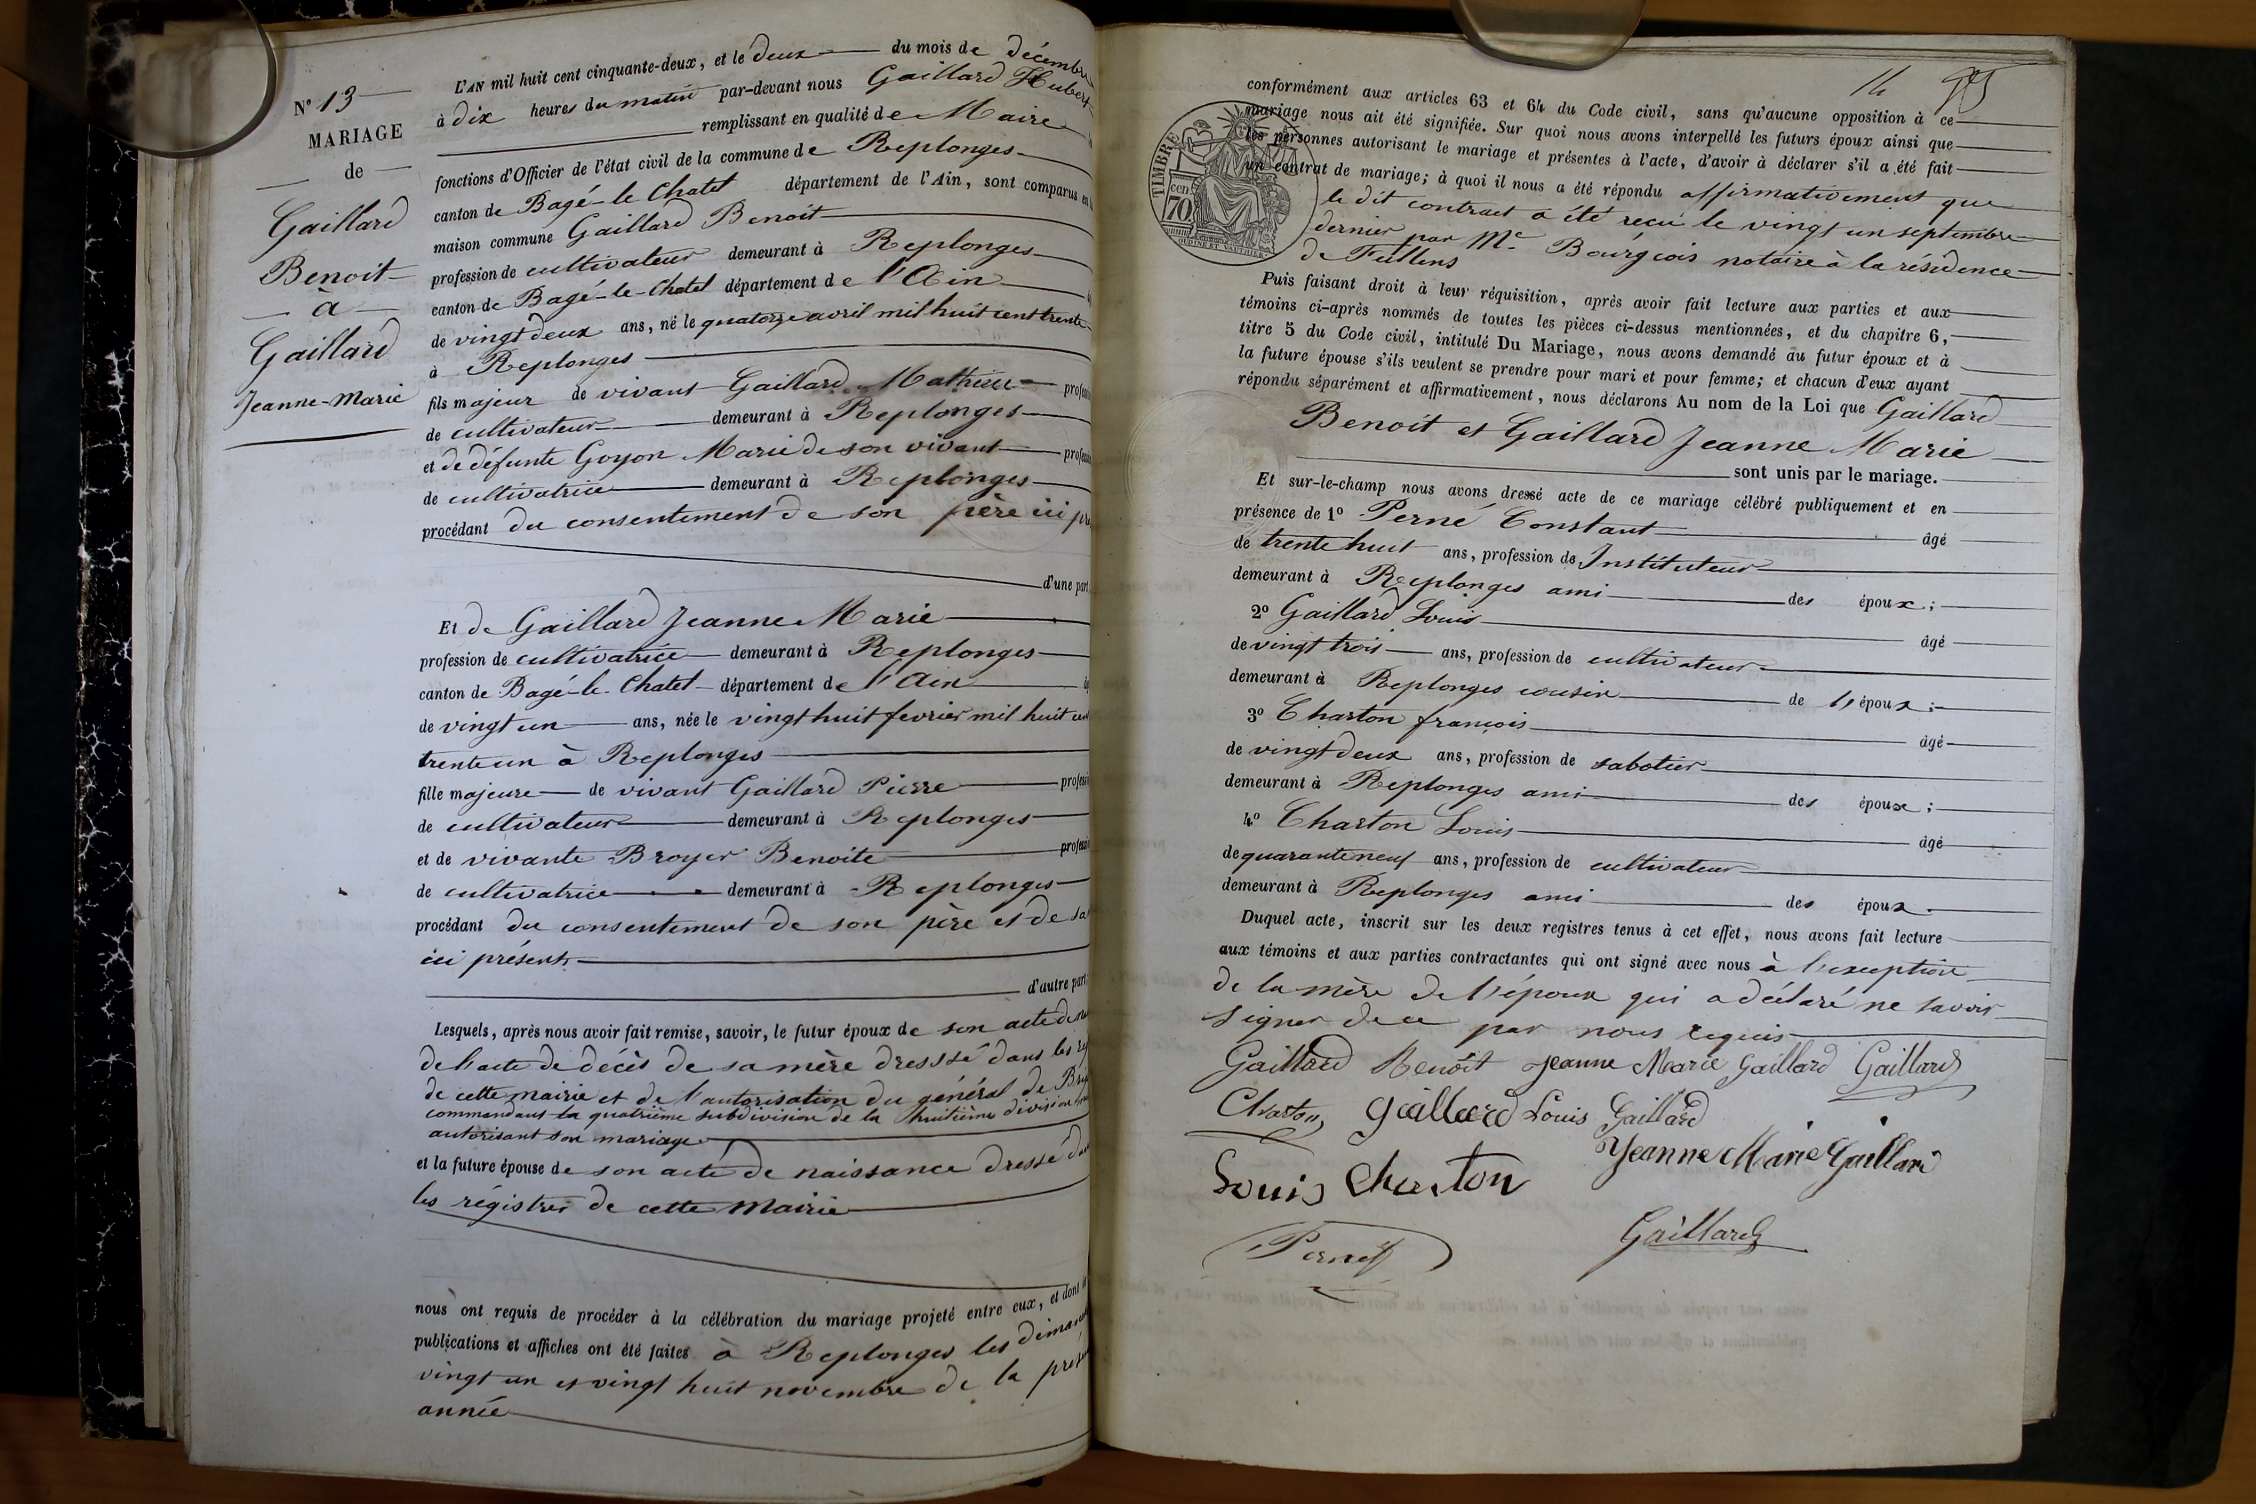 N° 13
MARIAGE
de
Gaillard
Benoit
à
Gaillard
Jeanne-Marie
L'AN mil huit cent cinquante-deux, et le deux du mois de décembre
à dix heures du matin par-devant nous Gaillard Hubert
remplissant en qualité de Maire
fonctions d'Officier de l'état civil de la commune de Replonges
canton de Bagé-le-Chatel département de l'Ain, sont comparus en
maison commune Gaillard Benoit
profession de cultivateur demeurant à Replonges
canton de Bagé-le-Chatel département de l'Ain
de vingt deux ans, né le quatorze avril mil huit cent trente
à Replonges
fils majeur de vivant Gaillard Mathieu
de cultivateur demeurant à Replonges
et de défunte Goyon Marie de son vivant
de cultivatrice demeurant à Replonges
procédant du consentement de son père ici
d'une part
Et de Gaillard Jeanne Marie
profession de cultivatrice demeurant à Replonges
canton de Bagé-le-Chatel département de l'Ain
de vingt un ans, née le vingt huit fevrier mil huit cent
trente un à Replonges
fille majeure de vivant Gaillard Pierre
de cultivateur demeurant à Replonges
et de vivante Broyer Benoite
de cultivatrice demeurant à Replonges
procédant du consentement de son père et de sa
ici présents
d'autre part
Lesquels, après nous avoir fait remise, savoir, le futur époux de son acte de
de l'acte de décès de sa mère dressé dans les
de cette mairie et de l'autorisation du général de
commandant la quatrième subdivision de la huitième division
autorisant son mariage
et la future épouse de son acte de naissance dressé
les régistres de cette Mairie
nous ont requis de procéder à la célébration du mariage projeté entre eux, et dont
publications et affiches ont été faites à Replonges les
vingt un et vingt huit novembre de la
année
14
TIMBRE
cen
70
conformément aux articles 63 et 64 du Code civil, sans qu'aucune opposition à ce
mariage nous ait été signifiée. Sur quoi nous avons interpellé les futurs époux ainsi que
les personnes autorisant le mariage et présentes à l'acte, d'avoir à déclarer s'il a été fait
un contrat de mariage; à quoi il nous a été répondu affirmativement que
le dit contract a été reçu le vingt un septembre
dernier par Me Bourgeois notaire à la résidence
de
Puis faisant droit à leur réquisition, après avoir fait lecture aux parties et aux
témoins ci-après nommés de toutes les pièces ci-dessus mentionnées, et du chapitre 6,
titre 5 du Code civil, intitulé Du Mariage, nous avons demandé au futur époux et à
la future épouse s'ils veulent se prendre pour mari et pour femme; et chacun d'eux ayant
répondu séparément et affirmativement, nous déclarons Au nom de la Loi que Gaillard
Benoit et Gaillard Jeanne Marie
sont unis par le mariage.
Et sur-le-champ nous avons dressé acte de ce mariage célébré publiquement et en
présence de 1° Perné Constant âgé
de trente huit ans, profession de Instituteur
demeurant à Replonges ami des époux;
2° Gaillard Louis âgé
de vingt trois ans, profession de cultivateur
demeurant à Replonges cousin de l'époux;
3° Charton françois âgé
de vingt deux ans, profession de sabotier
demeurant à Replonges ami des époux;
4° Charton Louis âgé
de quarante neuf ans, profession de cultivateur
demeurant à Replonges ami des époux.
Duquel acte, inscrit sur les deux registres tenus à cet effet, nous avons fait lecture
aux témoins et aux parties contractantes qui ont signé avec nous à l'exception
de la mère de l'époux qui a déclaré ne savoir
signer de ce par nous requis
Gaillard Benoit Jeanne Marie Gaillard Gaillard
Charton Gaillard Louis Gaillard
Jeanne Marie Gaillard
Louis Charton
Gaillard